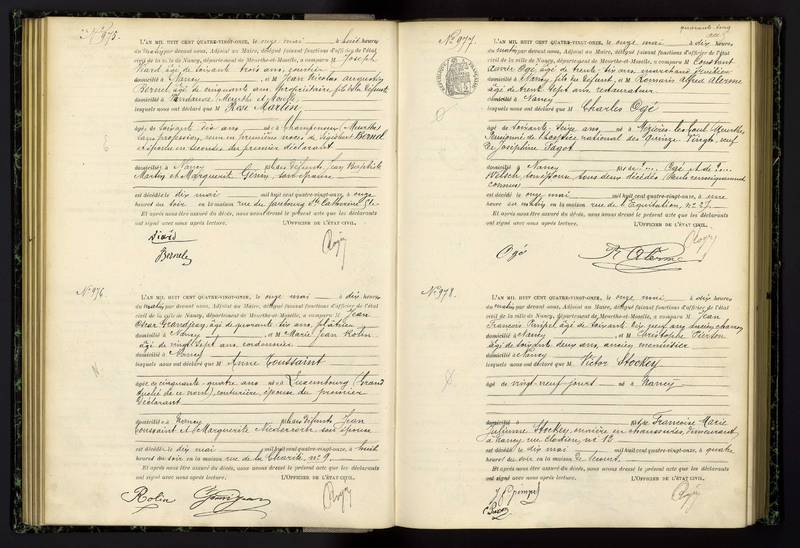 N° 975.
L'AN MIL HUIT CENT QUATRE-VINGT-ONZE, le onze mai à huit heures
du matin par devant nous, Adjoint au Maire, délégué faisant fonctions d'officier de l'état
civil de la ville de Nancy, département de Meurthe-et-Moselle, a comparu M Joseph
Viard, âgé de soixante trois ans, courtier
domicilié à Nancy et M Jean Nicolas Augustin
Bernel, âgé de cinquante ans, propriétaire, fils de la défunte
domicilié à (Meurthe et Moselle)
lesquels nous ont déclaré que M Rose Martin
âgée de soixante dix ans née à Champenoux (Meurthe)
sans profession, veuve en premières noces de Bernel
et épouse en secondes du premier déclarant
domiciliée à Nancy fille des défunts Jean Baptiste
Martin et Marguerite Génin, son épouse
est décédée le dix mai mil huit cent quatre-vingt-onze, à onze
heures du soir en la maison rue du faubourg Ste Catherine
Et après nous être assuré du décès, nous avons dressé le présent acte que les déclarants
ont signé avec nous après lecture. L'OFFICIER DE L'ÉTAT CIVIL,
Viard
Bernel
N° 976
L'AN MIL HUIT CENT QUATRE-VINGT-ONZE, le onze mai à dix heures
du matin par devant nous, Adjoint au Maire, délégué faisant fonctions d'officier de l'état
civil de la ville de Nancy, département de Meurthe-et-Moselle, a comparu M Jean
Oscar Grandjean, âgé de quarante six ans, plâtrier
domicilié à Nancy et M Marie Jean Rolin
âgé de vingt sept ans, cordonnier
domicilié à Nancy
lesquels nous ont déclaré que M Anne Toussaint
âgée de cinquante-quatre ans née à Luxembourg (Grand
Duché de ce nom), couturière, épouse du premier
déclarant
domiciliée à Nancy fille des défunts Jean
Toussaint et Marguerite son épouse
est décédée le dix mai mil huit cent quatre-vingt-onze, à huit
heures du soir en la maison rue de la Charité, n° 9
Et après nous être assuré du décès, nous avons dressé le présent acte que les déclarants
ont signé avec nous après lecture. L'OFFICIER DE L'ÉTAT CIVIL,
Rolin Grandjean
N° 977.
L'AN MIL HUIT CENT QUATRE-VINGT-ONZE, le onze mai à dix heures
du matin par devant nous, Adjoint au Maire, délégué faisant fonctions d'officier de l'état
civil de la ville de Nancy, département de Meurthe-et-Moselle, a comparu M Constant
Xavier Ogé, âgé de trente six ans, marchand
domicilié à Nancy, fils du défunt, et M Romain Alfred Alerme
âgé de trente sept ans, restaurateur
domicilié à Nancy
lesquels nous ont déclaré que M Charles Ogé
âgé de soixante-seize ans né à Rozières
pensionné de l'hospice national des Quinze Vingts, veuf
de Joséphine Pagot
domicilié à Nancy fils de ?... Ogé et de ?...
son épouse tous deux décédés (seuls renseignements
connus)
est décédé le onze mai mil huit cent quatre-vingt-onze, à une
heure du matin en la maison rue de l'Equitation, n° 27
Et après nous être assuré du décès, nous avons dressé le présent acte que les déclarants
ont signé avec nous après lecture. L'OFFICIER DE L'ÉTAT CIVIL,
Ogé R Alerme
N° 978.
L'AN MIL HUIT CENT QUATRE-VINGT-ONZE, le onze mai à dix heures
du matin par devant nous, Adjoint au Maire, délégué faisant fonctions d'officier de l'état
civil de la ville de Nancy, département de Meurthe-et-Moselle, a comparu M Jean
François âgé de soixante dix neuf ans, ancien
domicilié à Nancy et M Christophe Pierson
âgé de soixante deux ans, ancien menuisier
domicilié à Nancy
lesquels nous ont déclaré que M Victor Stockey
âgé de vingt-neuf jours né à Nancy
domicilié à fils de Françoise Marie
Julienne Stockey, ouvrière en chaussures, demeurant
à Nancy rue Clodion, n° 12
est décédé le dix mai mil huit cent quatre-vingt-onze, à quatre
heures du soir en la maison
Et après nous être assuré du décès, nous avons dressé le présent acte que les déclarants
ont signé avec nous après lecture. L'OFFICIER DE L'ÉTAT CIVIL,